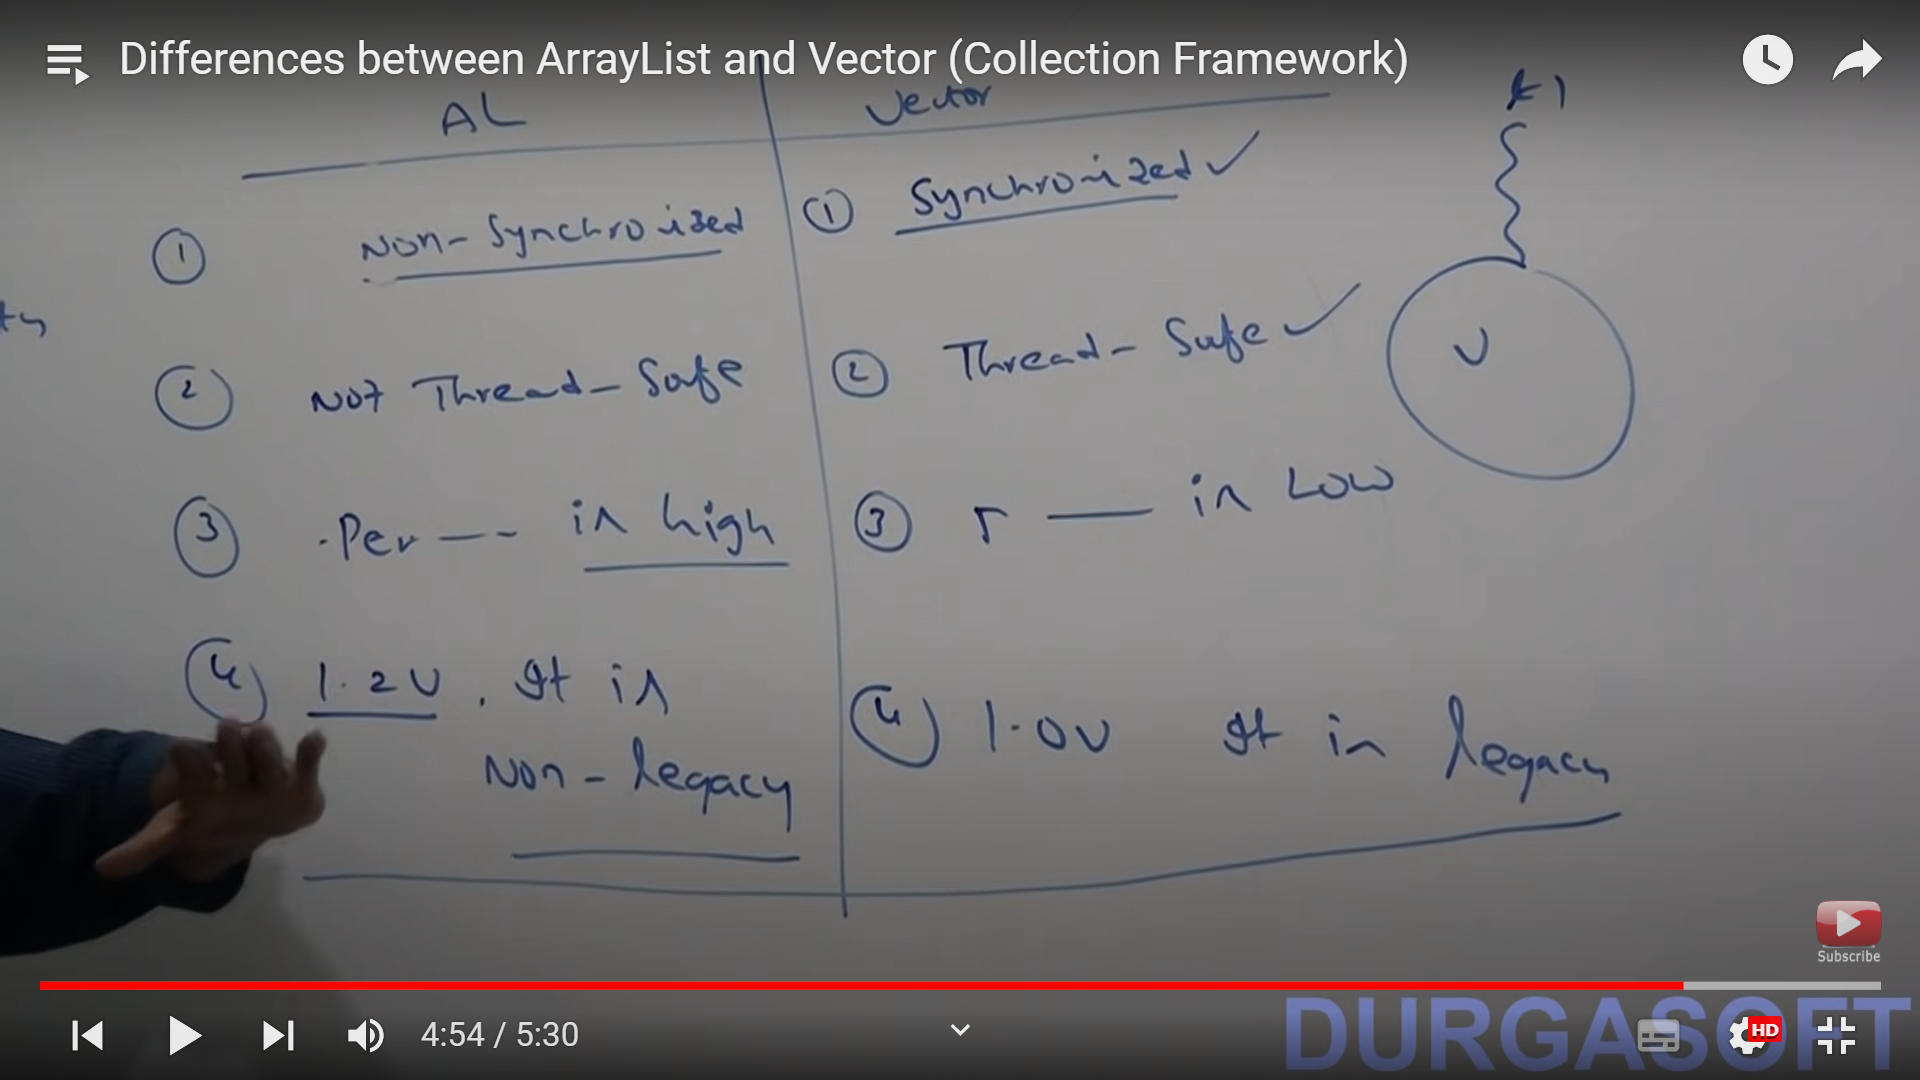 Differences between ArrayList and Vector (Collection Framework)
AL
Vector
t1
① Non-Synchronized
① Synchronized ✓
② Not Thread-Safe
② Thread-Safe ✓
V
③ Per --- is high
③ r — is Low
④ 1.2V. It is
Non-legacy
④ 1.0V It is legacy
Subscribe
4:54 / 5:30
HD
DURGASOFT